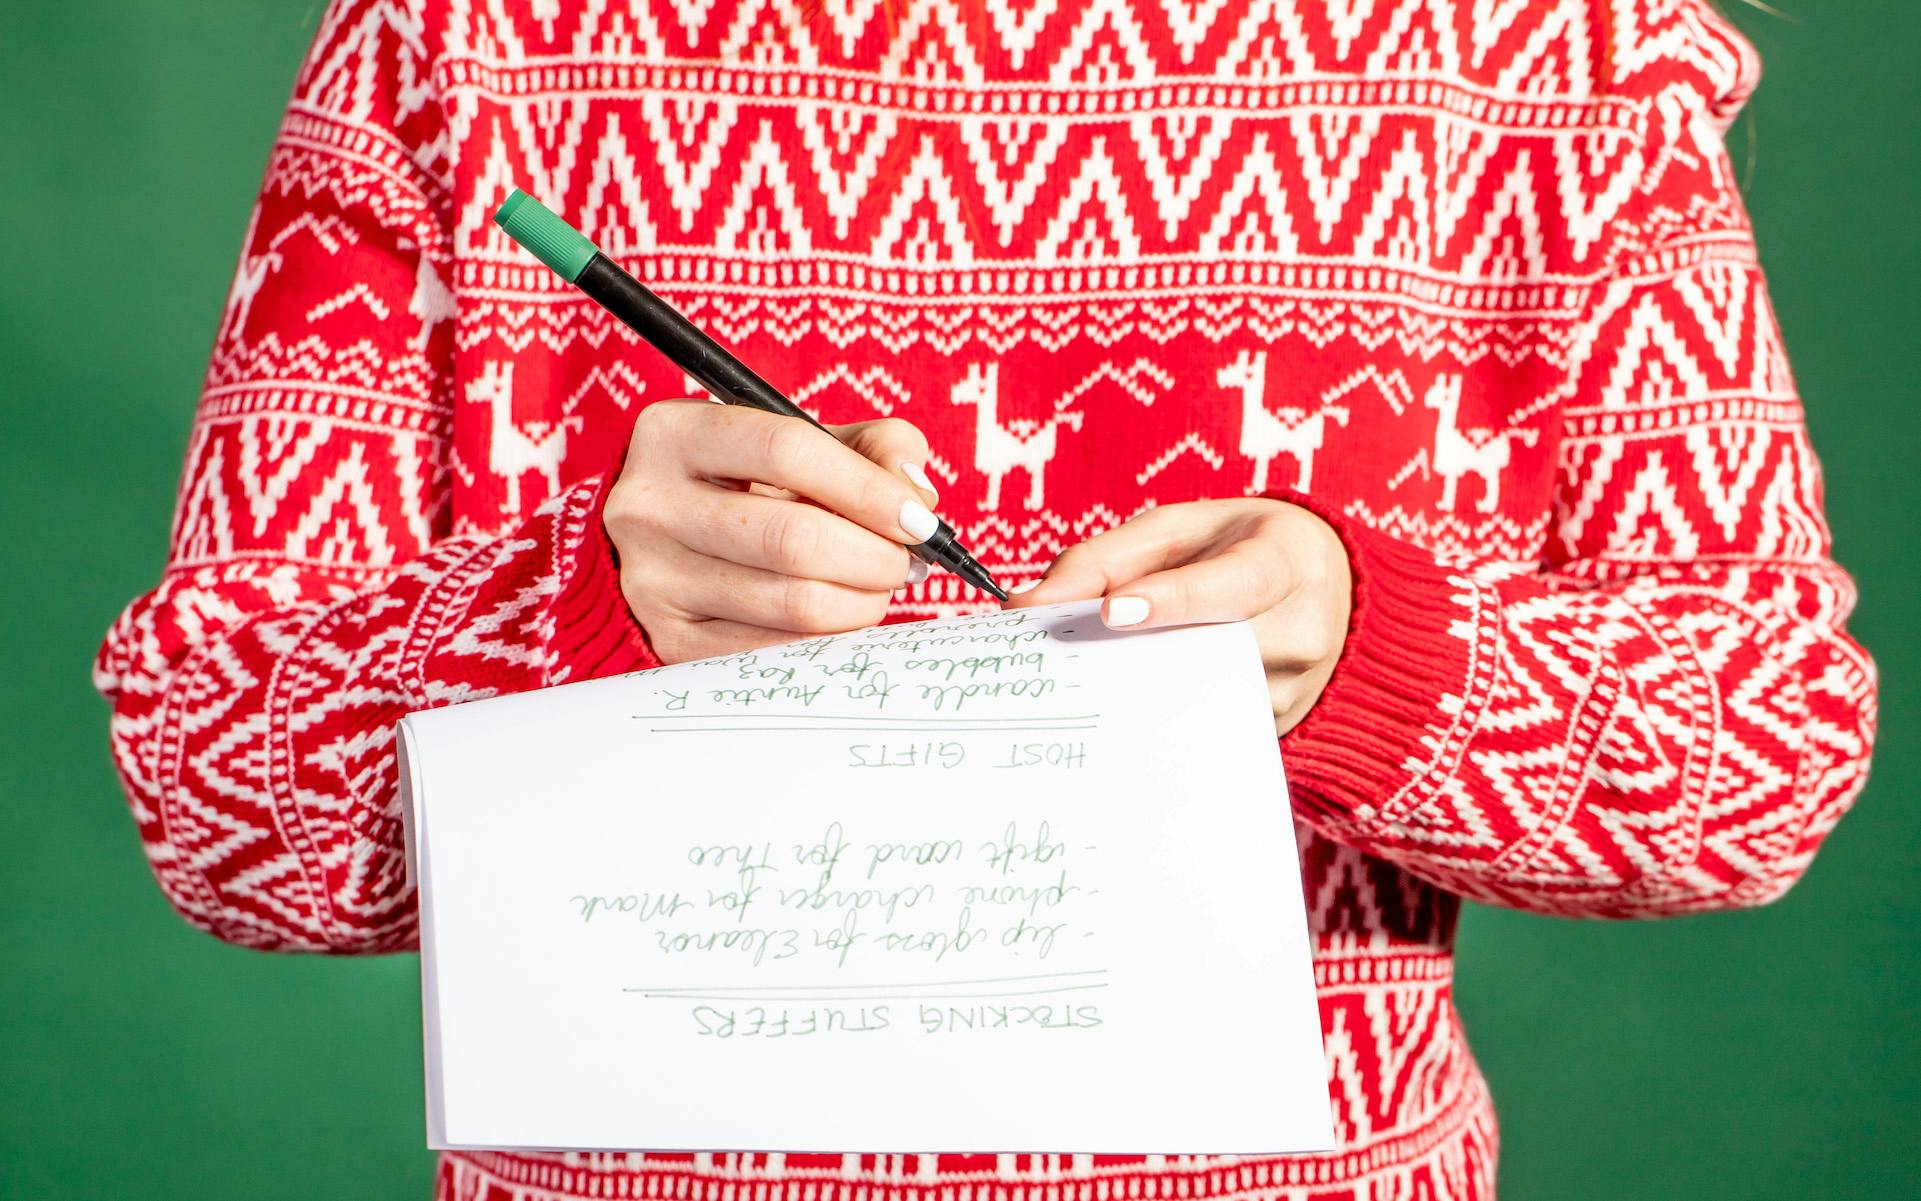 STOCKING STUFFERS
- lip gloss for Eleanor
- phone charger for Mark
- gift card for Theo
HOST GIFTS
- candle for Auntie R.
- bubbles for Raz
- charcuterie for
-